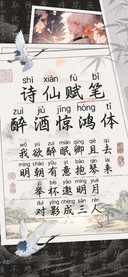 shī xiān fù bǐ
诗仙赋笔
zuì jiǔ jīng hóng tǐ
醉酒惊鸿体
wǒ yù zuì mián qīng qiě qù
我欲醉眠卿且去
míng zhāo yǒu yì bào qín lái
明朝有意抱琴来
jǔ bēi yāo míng yuè
举杯邀明月
duì yǐng chéng sān rén
对影成三人